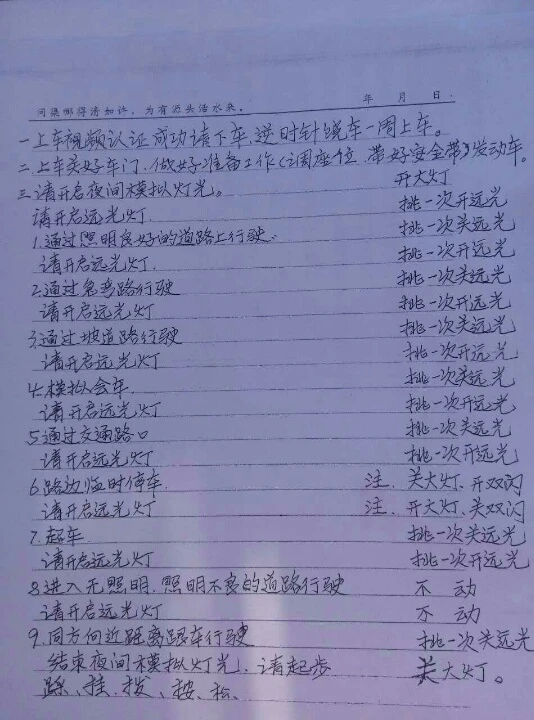 问渠哪得清如许，为有源头活水来。 年 月 日
一上车视频认证成功请下车，逆时针绕车一周上车。
二上车关好车门，做好准备工作（调座位，带好安全带）发动车。
三请开启夜间模拟灯光。 开大灯
请开启远光灯 挑一次开远光
1.通过照明良好的道路上行驶. 挑一次关远光
请开启远光灯. 挑一次开远光
2.通过急弯路行驶 挑一次关远光
请开启远光灯 挑一次开远光
3.通过坡道路行驶 挑一次关远光
请开启远光灯 挑一次开远光
4.模拟会车 挑一次关远光
请开启远光灯 挑一次开远光
5.通过交通路口 挑一次关远光
请开启远光灯 挑一次开远光
6.路边临时停车. 注、关大灯、开双闪
请开启远光灯 注、开大灯、关双闪
7.超车. 挑一次关远光
请开启远光灯 挑一次开远光
8.进入无照明.照明不良的道路行驶 不动
请开启远光灯 不动
9.同方向近距离跟车行驶 挑一次关远光
结束夜间模拟灯光，请起步 关大灯。
踩、挂、拨、按、松、